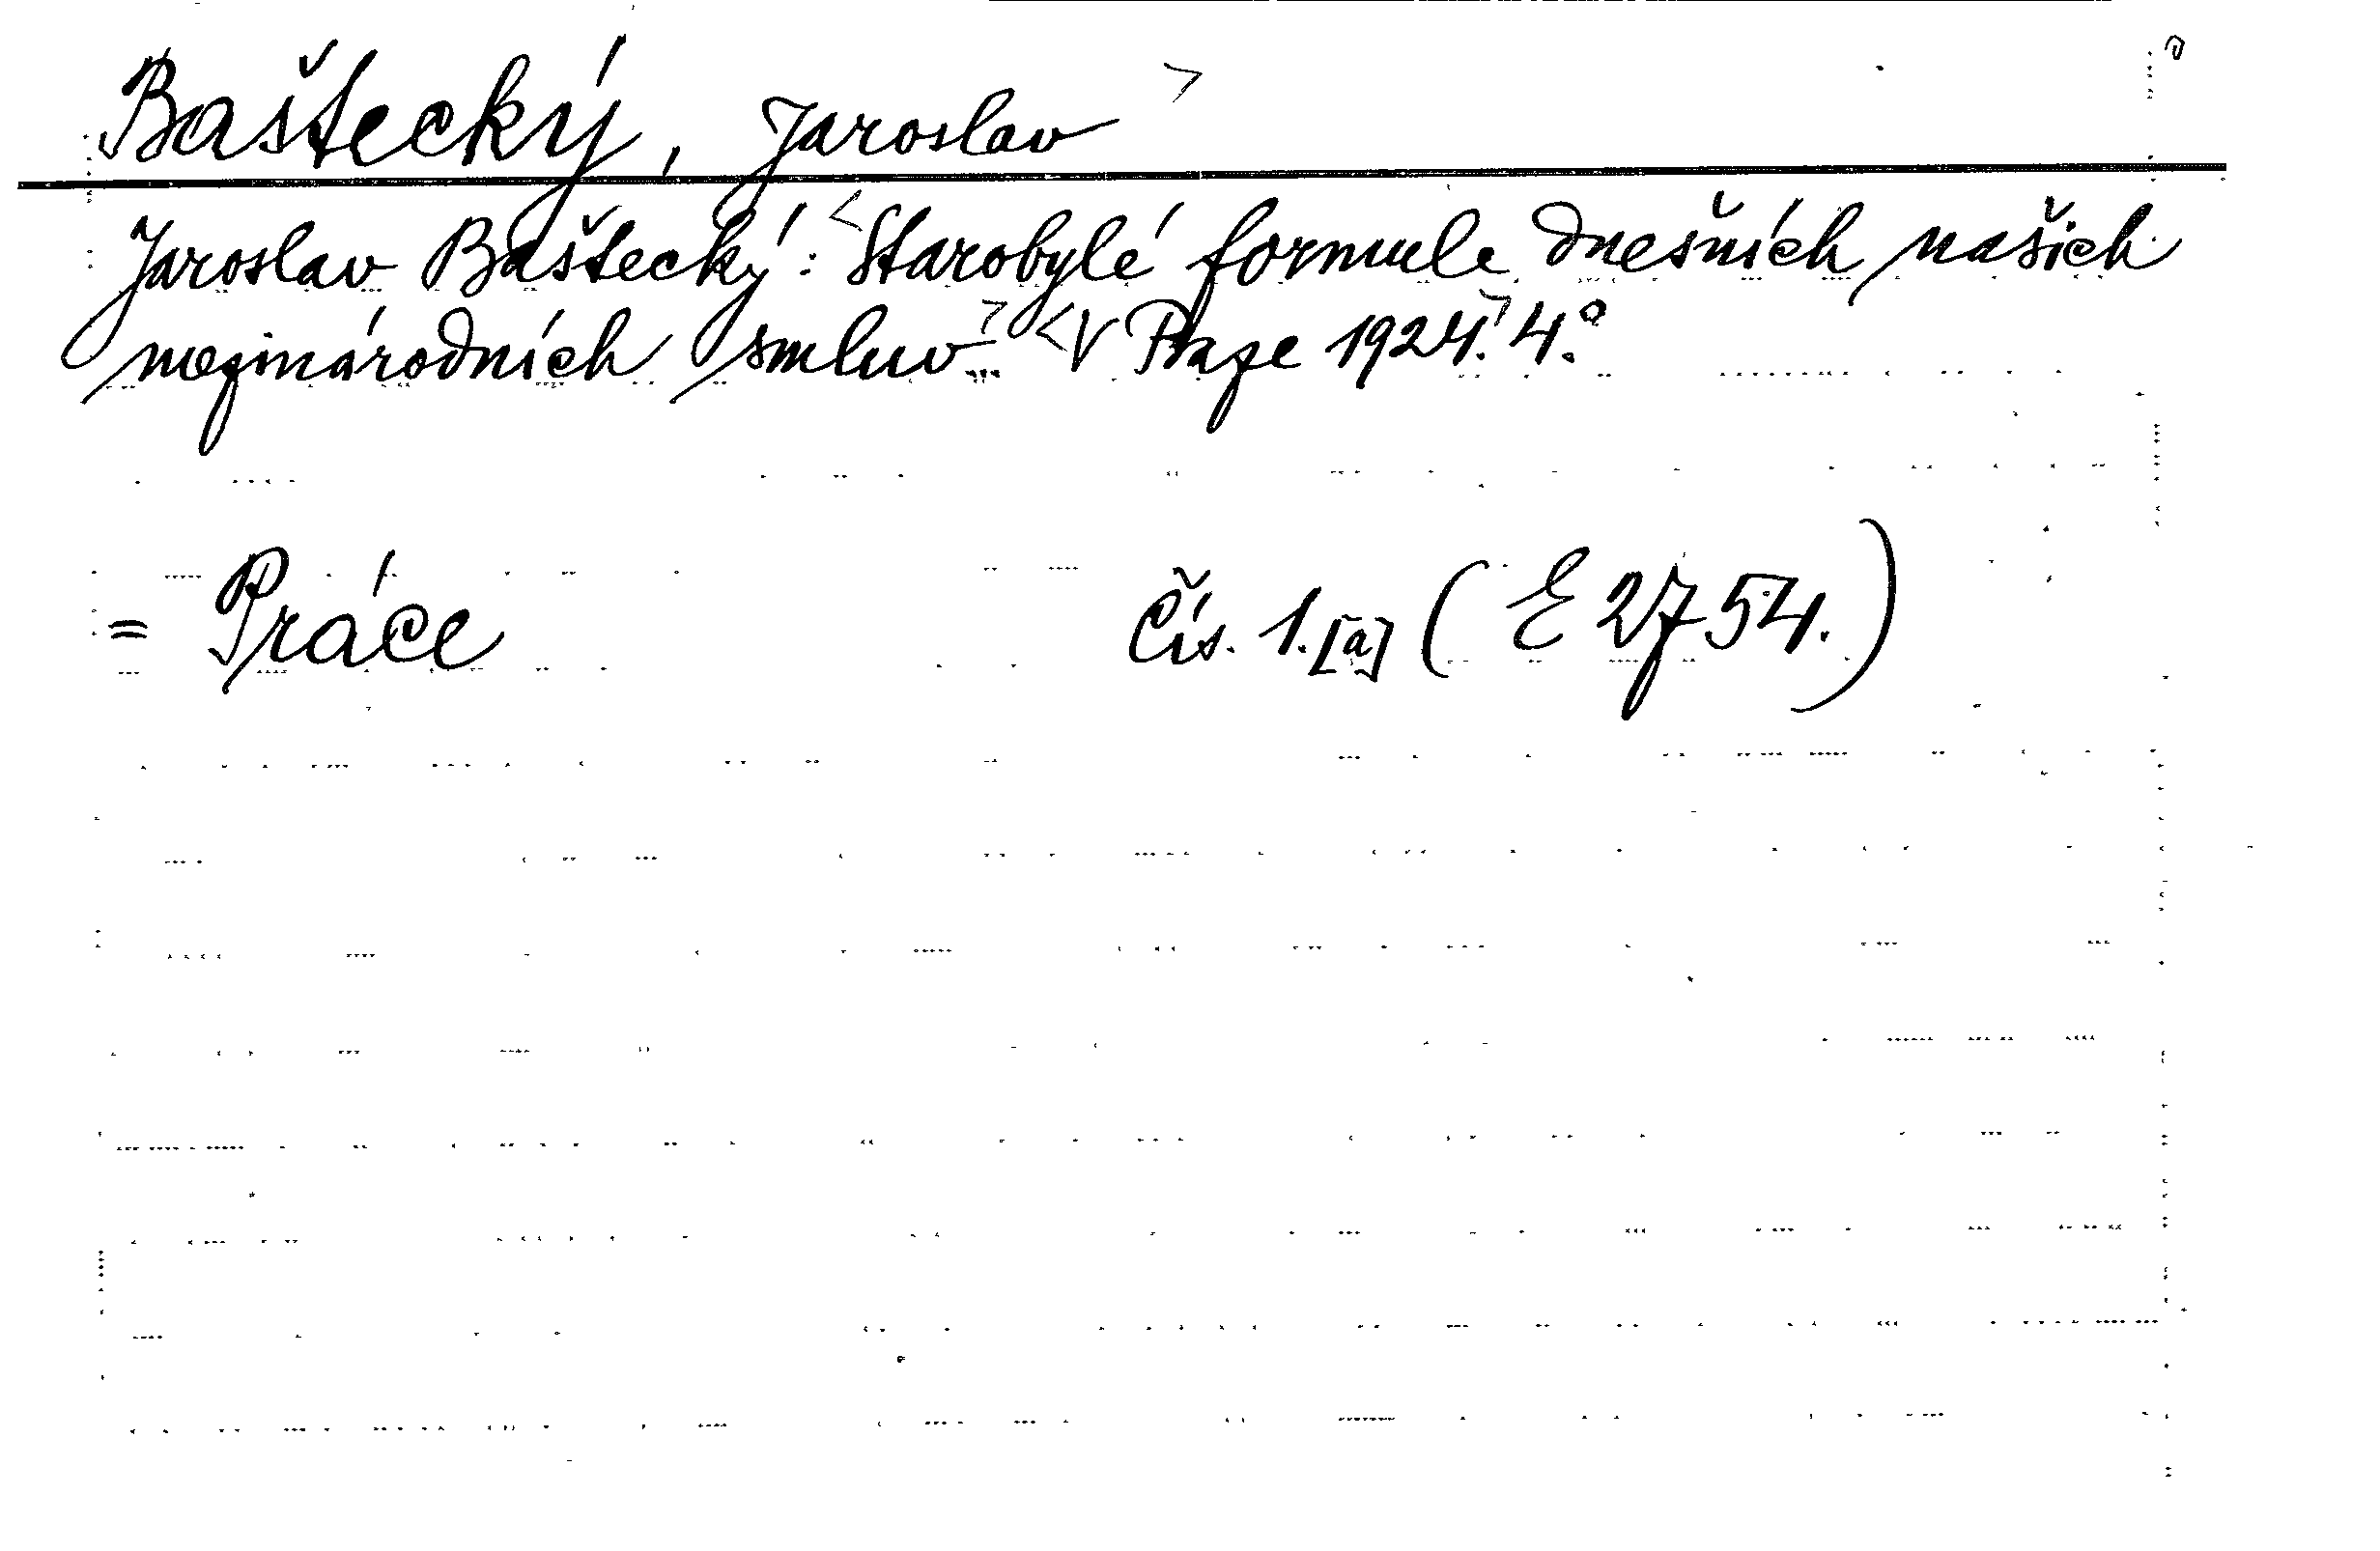 Baštecký, Jaroslav >
Jaroslav Baštecký: <Starobylé formule dnešních našich
mezinárodních smluv.> <V Praze 1924.> 4.°
= Práce Čís. 1.[a] (E 2754.)